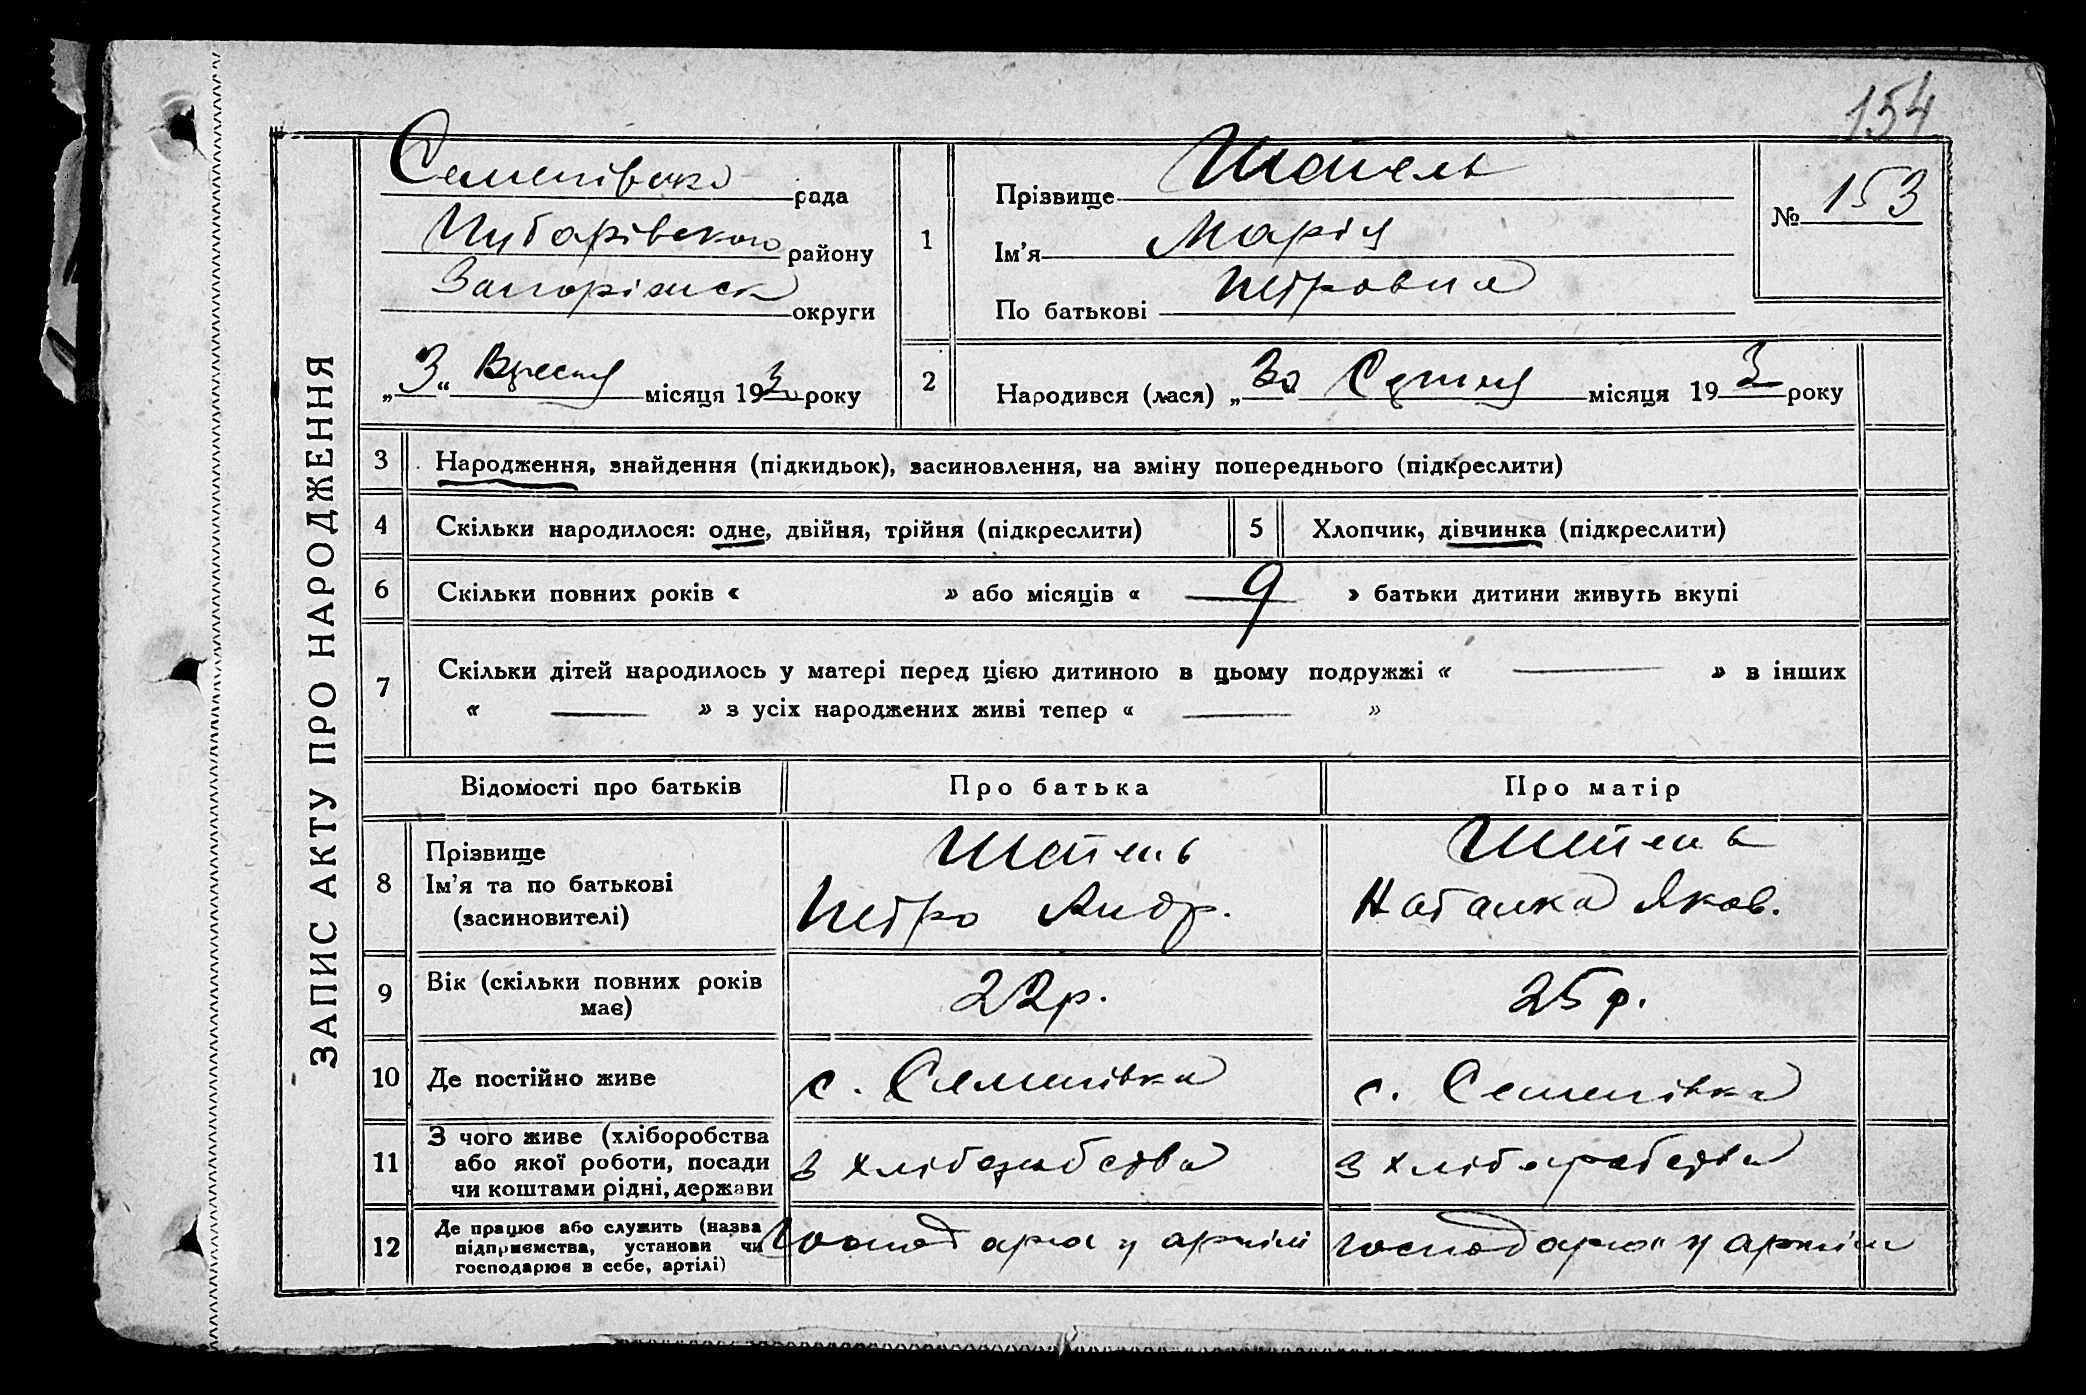 154
ЗАПИС АКТУ ПРО НАРОДЖЕННЯ
Семенівська рада
Чубарівського району
Запоріжск округи
„3“ Вресня місяця 193 року
1
Прізвище
Ім'я Марія
По батькові Петровна
№ 153
2 Народився (лася) „30 Серпня місяця 193 року
3 Народження, знайдення (підкидьок), засиновлення, на зміну попереднього (підкреслити)
4 Скільки народилося: одне, двійня, трійня (підкреслити)
5 Хлопчик, дівчинка (підкреслити)
6 Скільки повних років « » або місяців « 9 » батьки дитини живуть вкупі
7 Скільки дітей народилось у матері перед цією дитиною в цьому подружжі « — » в інших
« — » з усіх народжених живі тепер « — »
Відомості про батьків Про батька Про матір
8 Прізвище
Ім'я та по батькові
(засиновителі)
Петро Андр.
Наталка Яков.
9 Вік (скільки повних років
має)
22р.
25р.
10 Де постійно живе
с. Семенівка
с. Семенівка
11 З чого живе (хліборобства
або якої роботи, посади
чи коштами рідні, держави
з хліборобства
з хліборобства
12 Де працює або служить (назва
підприємства, установи чи
господарює в себе, артілі)
господарює у артілі
господарює у артілі